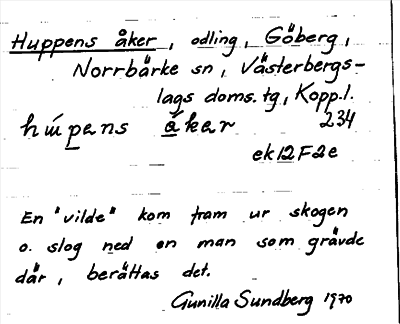 Huppens åker, odling, Göberg,
Norrbärke sn, Västerbergs-
lags doms.tg, Kopp.l.
húpens åker 234
ek12F2e
En "vilde" kom fram ur skogen
o. slog ned en man som grävde
där, berättas det.
Gunilla Sundberg 1970